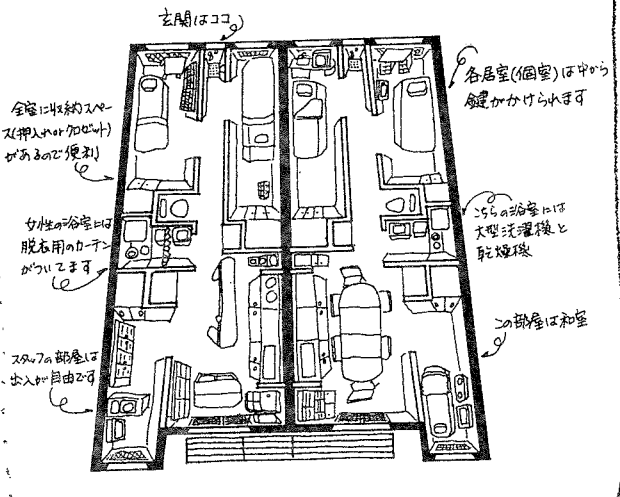 玄関はココ
各居室(個室)は中から
鍵がかけられます
全室に収納スペー
ス(押入れorクロゼット)
があるので便利
女性の浴室には
脱衣用のカーテン
がついてます
こちらの浴室には
大型洗濯機と
乾燥機
この部屋は和室
スタッフの部屋は
出入が自由です